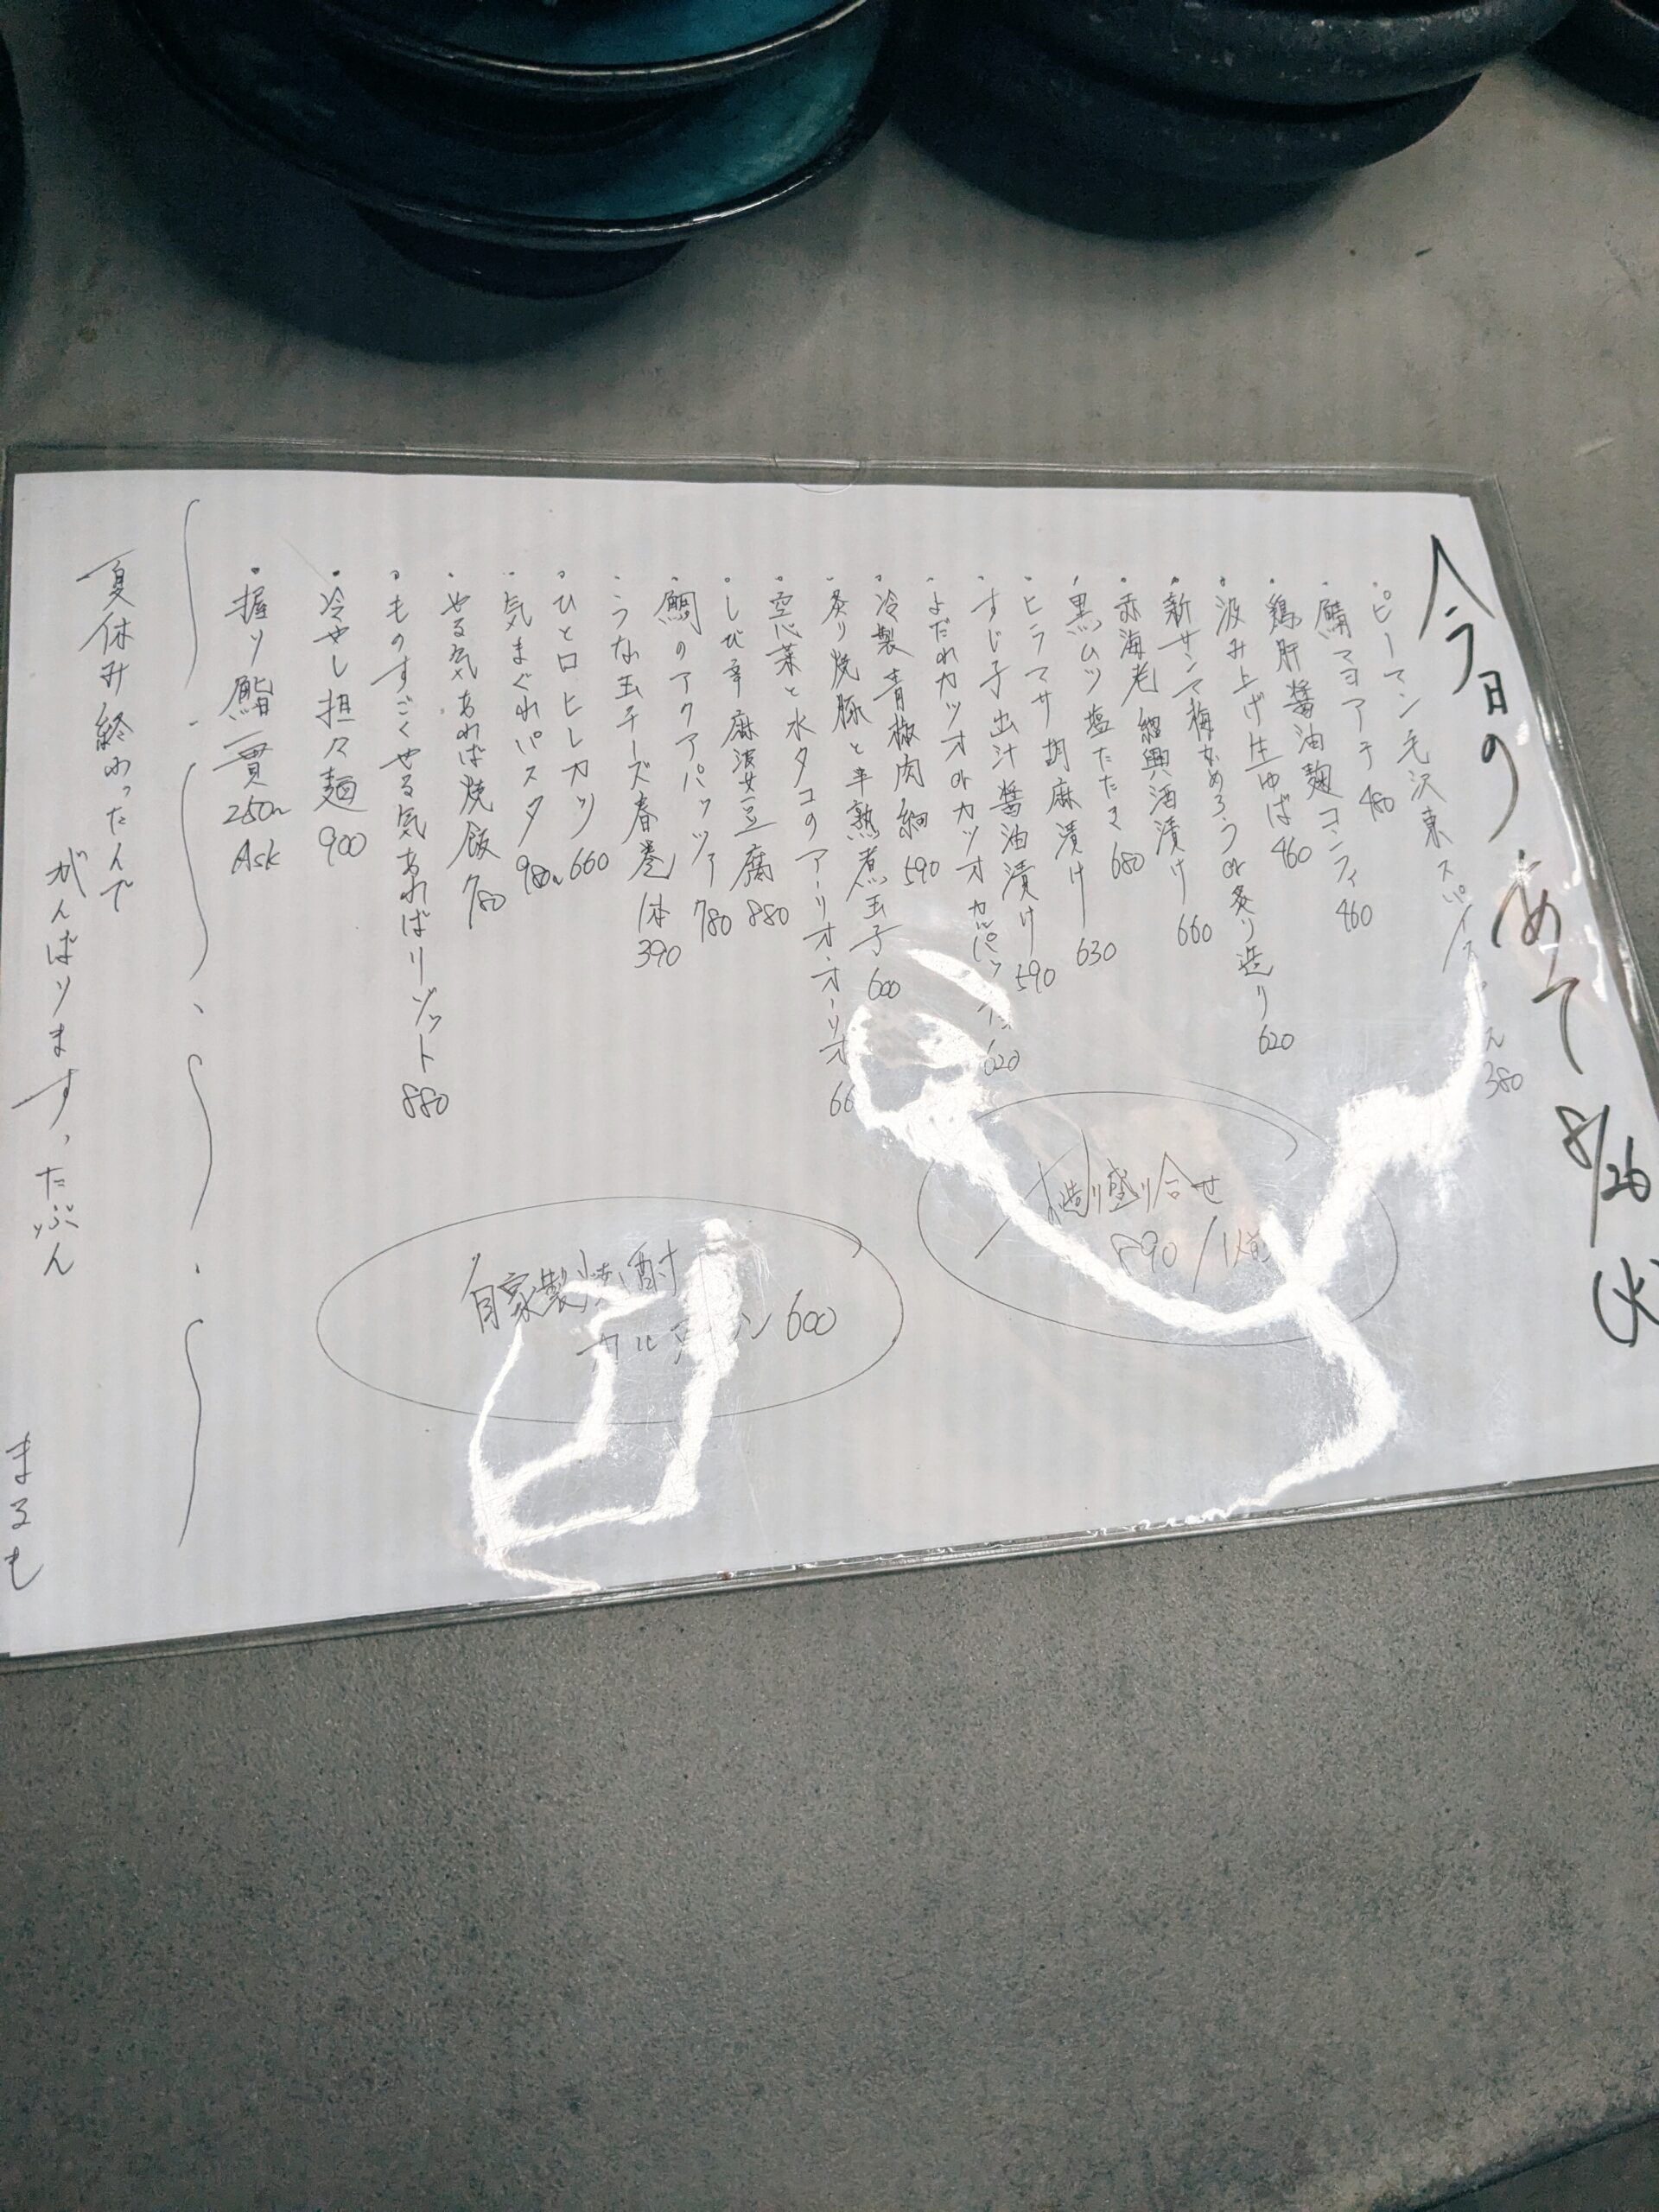 今日のあて 8/26 (火)
・ピーマン毛沢東スパイス 380
・鯖マヨアテ 480
・鶏肝醤油麹コンフィ 460
・汲み上げ生ゆば 460
・新サンマ梅なめろうor炙り造り 620
・赤海老紹興酒漬け 660
・黒ムツ塩たたき 680
・ヒラマサ胡麻漬け 630
・すじ子出汁醤油漬け 590
・よだれカツオorカツオカルパッチョ 620
・冷製青椒肉絲 590
・炙り焼豚と半熟煮玉子 600
・空心菜と水タコのアーリオ・オーリオ 66
・しび辛麻婆豆腐 880
・鯛のアクアパッツァ 780
・うな玉チーズ春巻 1本 390
・ひと口ヒレカツ 660
・気まぐれパスタ 980〜
・やる気あれば焼飯 780
・ものすごくやる気あればリゾット 880
・冷やし担々麺 900
・握り鮨一貫 250〜 Ask
お造り盛り合せ
890/1人前
自家製焼酎
600
夏休み終わったんで
がんばります、たぶん
まるも